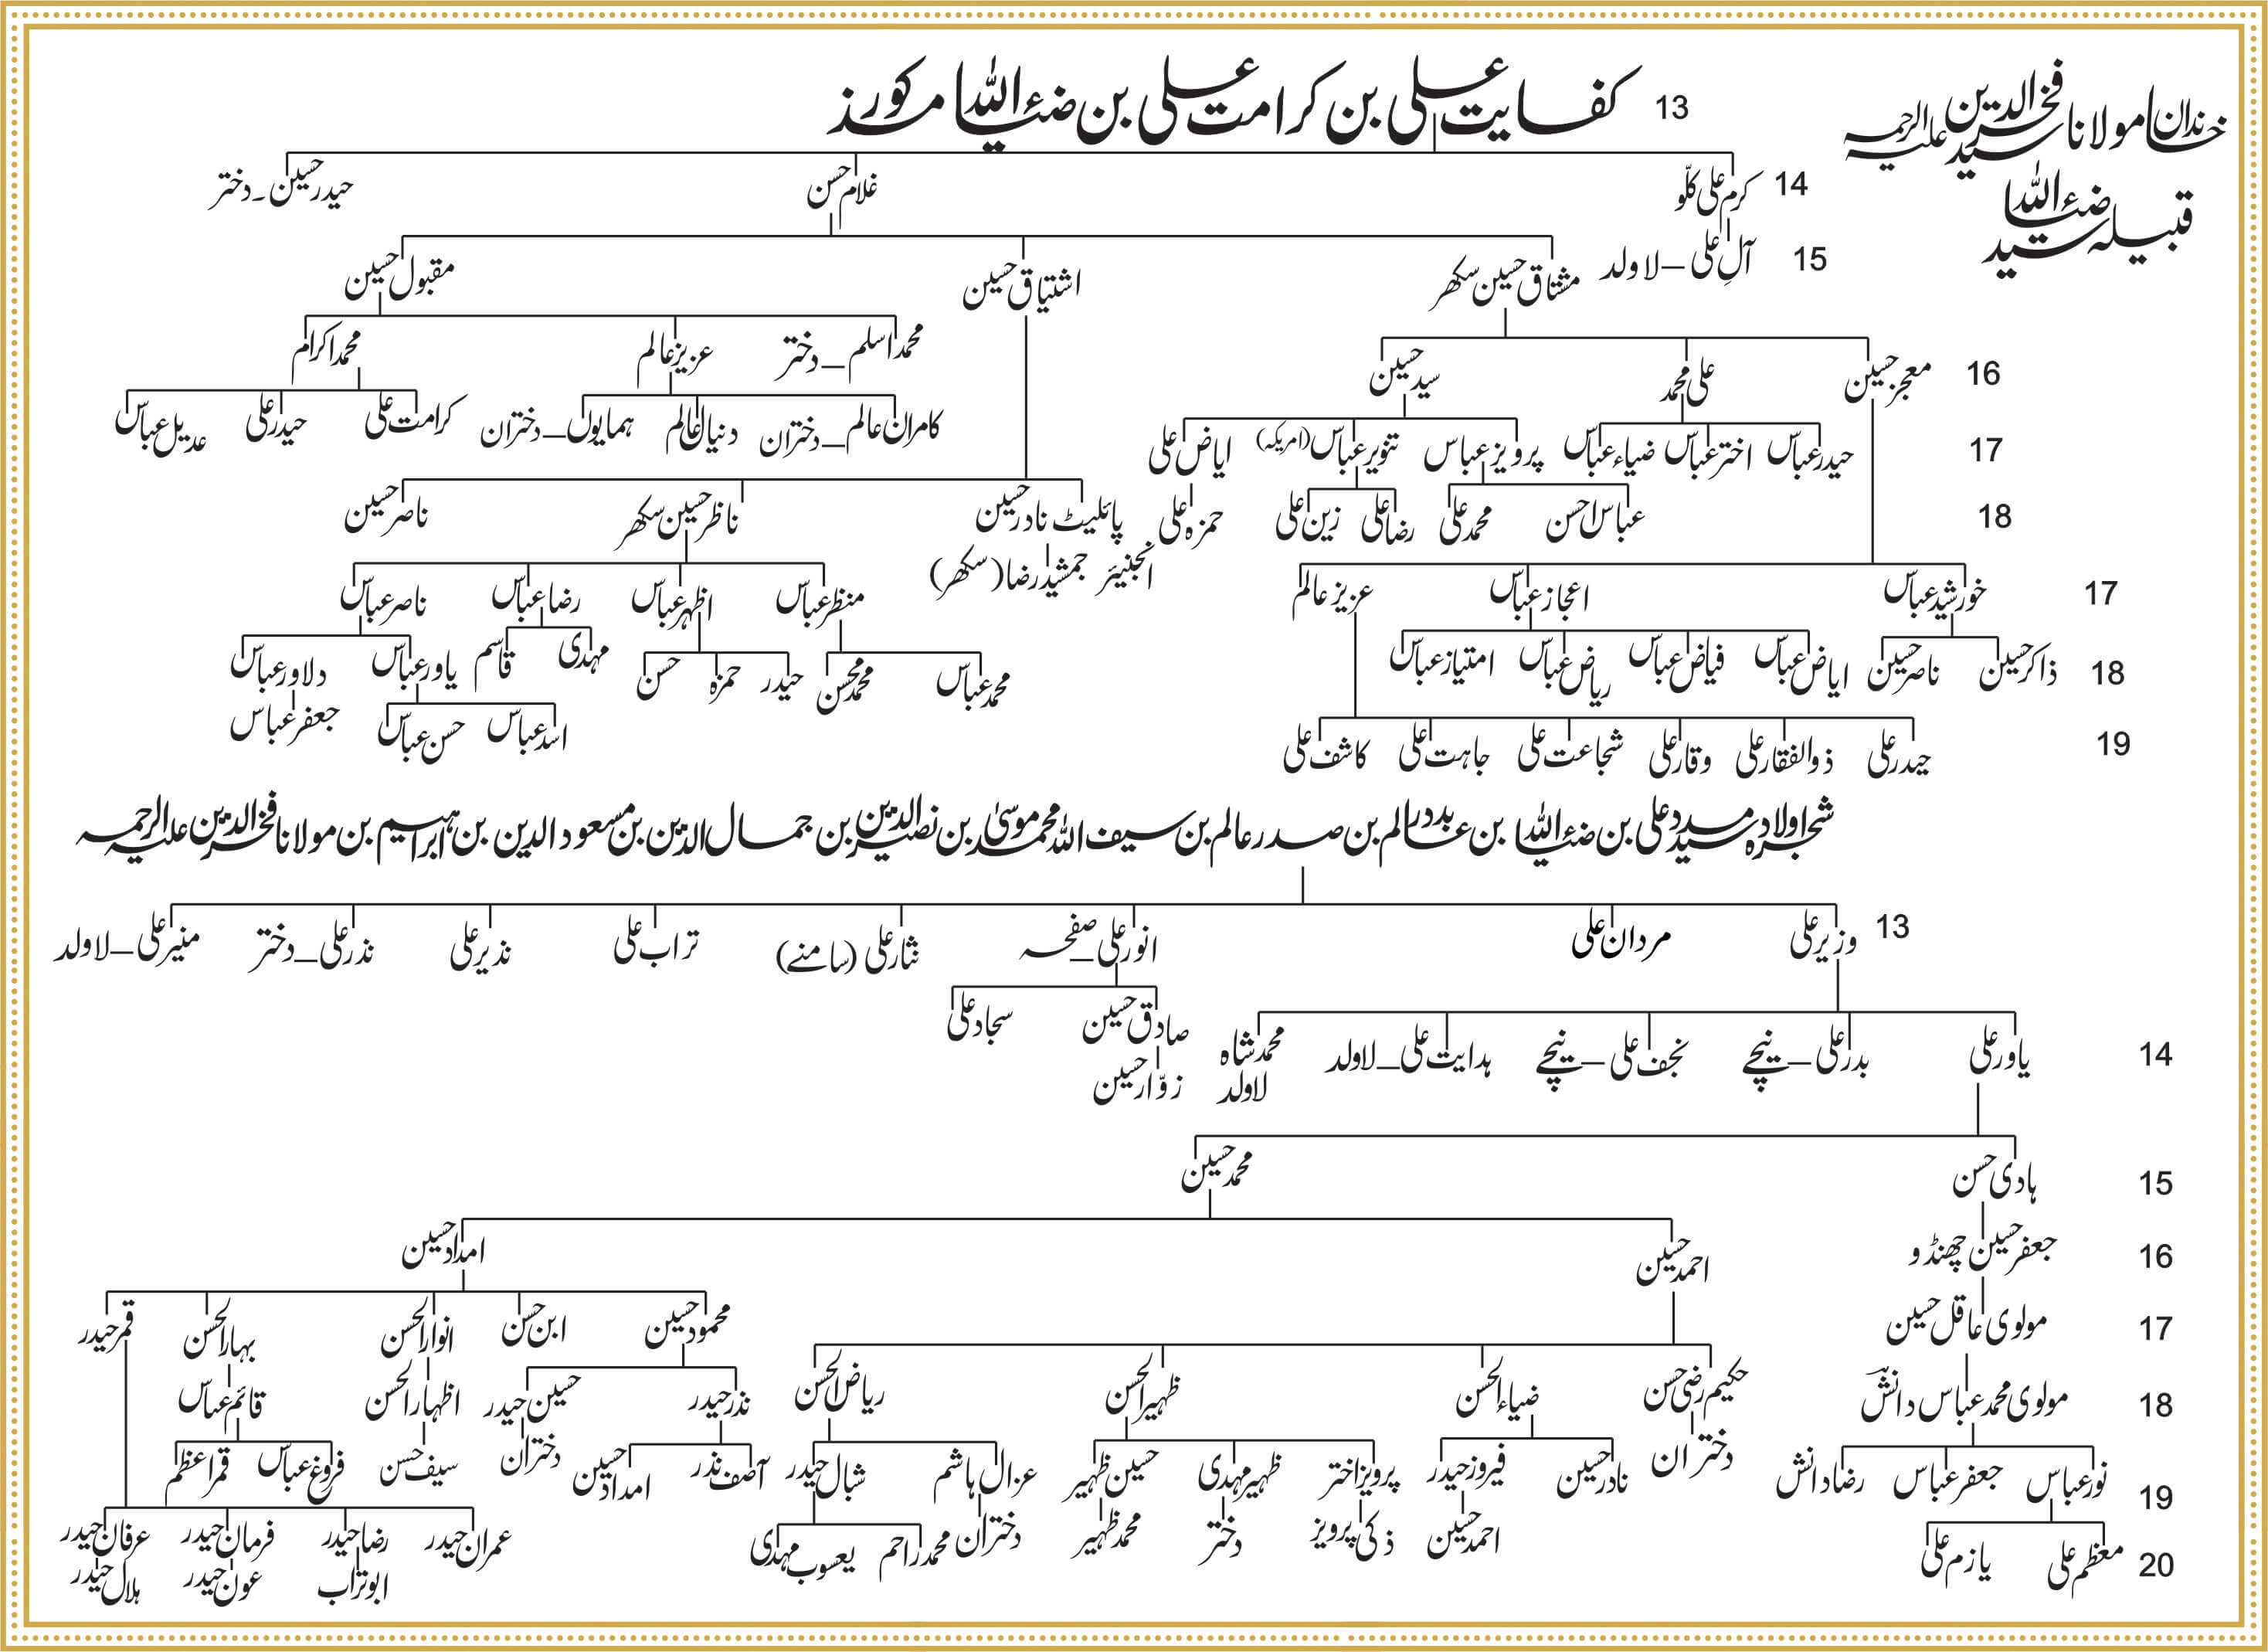 خاندان مولانا سید فخرالدین علیہ الرحمہ
قبیلہ سید ضیاءاللہ
13 کفایت علی بن کرامت علی بن ضیاءاللہ مذکور
14 کرم علی کلّو غلام حسن حیدر حسین۔دختر
15 آلِ علی – لاولد
مشتاق حسین سکھر اشتیاق حسین مقبول حسین
16 معجز حسین علی محمد سید حسین محمد اسلم – دختر عزیز عالم محمد اکرام
17 حیدر عباسؔ اختر عباسؔ ضیاء عباسؔ پرویز عباس تنویر عباسؔ (امریکہ) ایاض علی کامران عالم – دختران دنیال عالم ہمایوں – دختران کرامت علی حیدر علی عدیل عباسؔ
18 عباس احسن محمد علی رضا علی زین علی حمزہ علی پائلیٹ نادر حسین ناظر حسین سکھر ناصر حسین
انجنیئر جمشید رضا (سکھر)
17 خورشید عباسؔ اعجاز عباسؔ عزیز عالم منظر عباسؔ اظہر عباسؔ رضا عباسؔ ناصر عباسؔ
18 ذاکر حسین ناصر حسین ایاض عباسؔ فیاض عباسؔ ریاض عباسؔ امتیاز عباسؔ محمد عباسؔ محمد محسن حیدر حمزہ حسن مہدی قاسم یاور عباسؔ دلاور عباسؔ
19 حیدر علی ذوالفقار علی وقار علی شجاعت علی جاہت علی کاشف علی اسد عباسؔ حسن عباسؔ جعفر عباس
شجرہ اولاد سید مدد علی بن ضیاءاللہ بن بدر عالم بن صدر عالم بن سیف اللہ محمد موسیٰ بن نصیر الدین بن جمال الدین بن مسعود الدین بن ابراہیم بن مولانا فخرالدین علیہ الرحمہ
13 وزیر علی مردان علی انور علی – صفحہ نثار علی (سامنے) تراب علی نذیر علی نذر علی – دختر منیر علی – لاولد
صادق حسین سجاد علی
زوّار حسین
14 یاور علی بدر علی – نیچے نجف علی – نیچے ہدایت علی – لاولد محمد شاہ لاولد
15 ہادی حسن محمد حسین
16 جعفر حسین چھنڈو احمد حسین امداد حسین
17 مولوی عاقل حسین محمود حسین ابن حسن انوار الحسن بہار الحسن قمر حیدر
18 مولوی محمد عباس دانشؔ حکیم رضی حسن ضیاء الحسن ظہیر الحسن ریاض الحسن نذر حیدر حسین حیدر اظہار الحسن قائم عباسؔ
دختران
19 نور عباس جعفر عباس رضا دانش نادر حسین فیروز حیدر پرویز اختر ظہیر مہدی حسین ظہیر عزال ہاشم شبال حیدر آصف نذر امداد حسین دختران سیف حسن فروغ عباسؔ قمر اعظم
20 معظم علی یازم علی احمد حسین ذکی پرویز دختر محمد ظہیر دختران محمد راحم یعسوب مہدی عمران حیدر رضا حیدر فرمان حیدر عرفان حیدر
ابوتراب عون حیدر ہلال حیدر